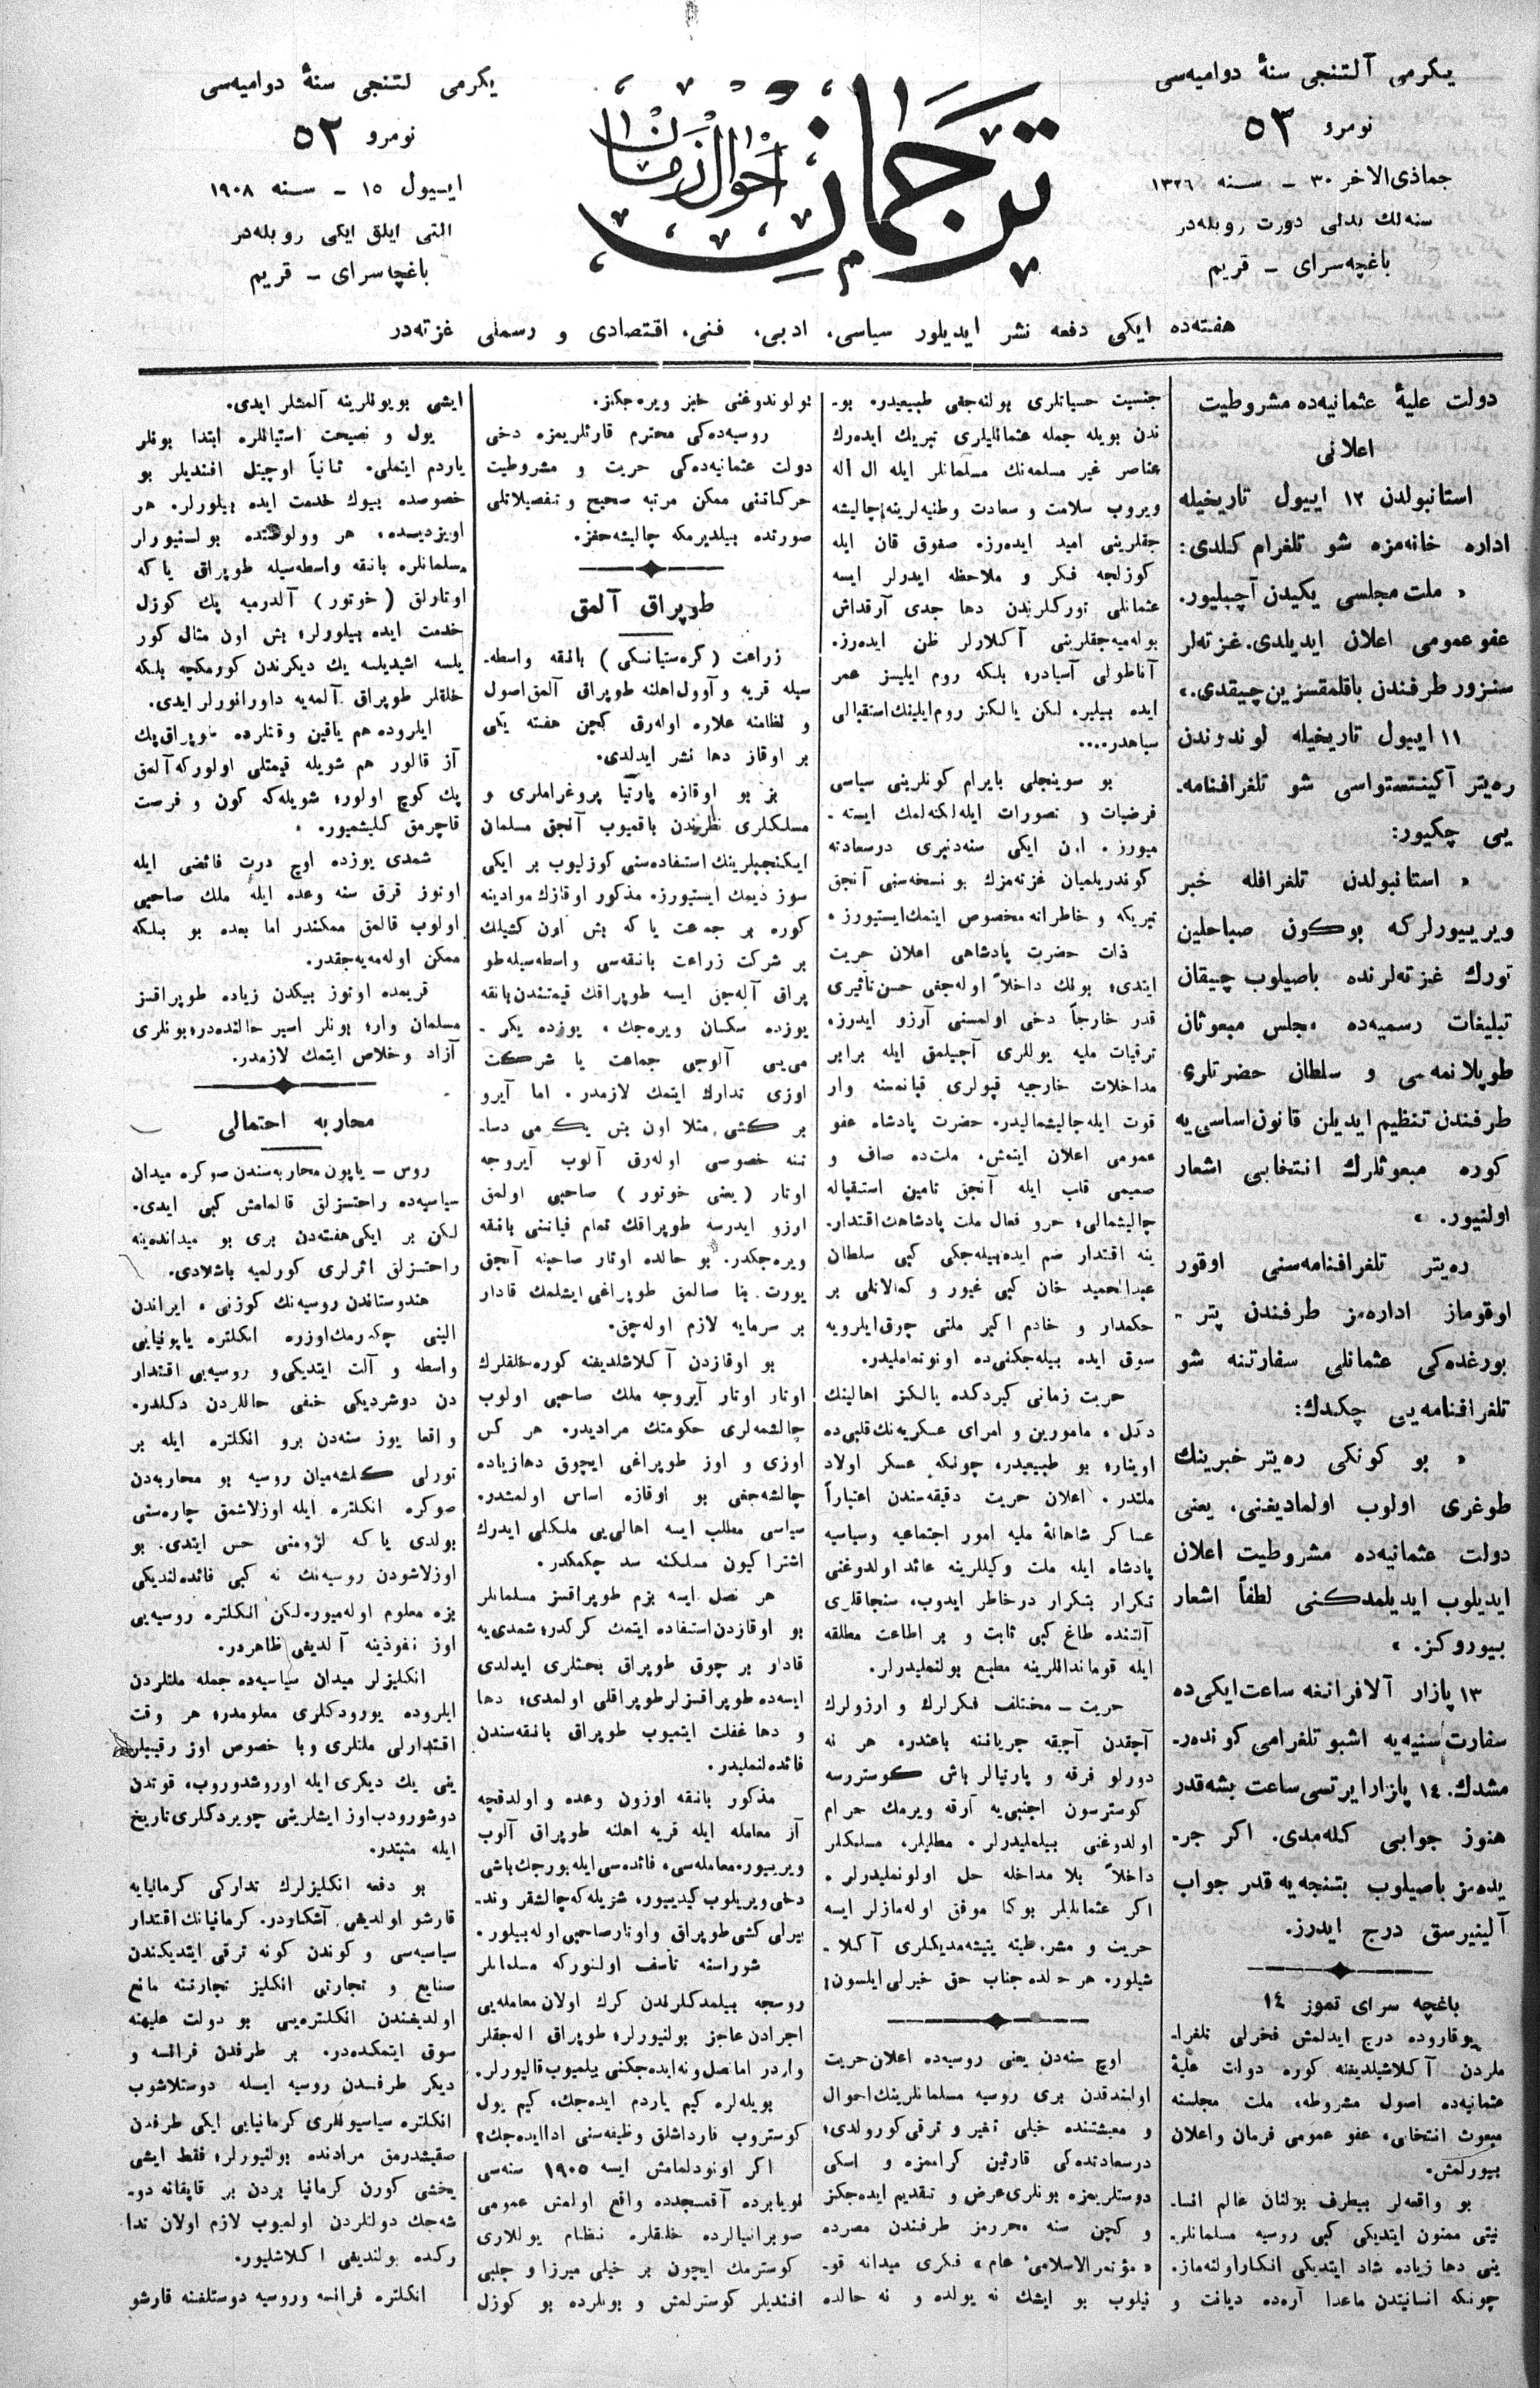 یکرمی آلتنجی سنهٔ دوامیه‌سی
نومرو ٥٣
جماذی‌الاخر ٣٠ ـ سنه ١٣٢٦
سنه‌لك بدلی دورت روبله‌در
باغچه‌سرای ـ قریم
ترجمان
احوال زمان
یکرمی لتنجی سنهٔ دوامیه‌سی
نومرو ٥٢
ایـیول ١٥ ـ سنه ١٩٠٨
التی ایلق ایکی روبله‌در
باغچه‌سرای ـ قریم
هفته‌ده ایکی دفعه نشر ایدیلور سیاسی، ادبی، فنی، اقتصادی و رسملی غزته‌در
دولت علیهٔ عثمانیه‌ده مشروطیت
اعلانی
استانبولدن ١٢ ایيول تاریخیله
اداره خانه‌مزه شو تلغرام کلدی:
« ملت مجلسی یکیدن آچیلیور.
عفو عمومی اعلان ایدیلدی. غزته‌لر
سنزور طرفندن باقلمقسزین چیقدی.»
١١ ایيول تاریخیله لوندوندن
ره‌یتر آکینتستواسی شو تلغرافنامه‌ـ
یی چکیور:
« استانبولدن تلغرافله خبر
ویرییورلرکه بوکون صباحلین
تورك غزته‌لرنده باصیلوب چیقان
تبلیغات رسمیه‌ده مجلس مبعوثان
طوپلانمه‌سی و سلطان حضرتلری
طرفندن تنظیم ایدیلن قانون‌اساسی‌یه
کوره مبعوثلرك انتخابی اشعار
اولنیور. »
ره‌یتر تلغرافنامه‌سنی اوقور
اوقوماز اداره‌مز طرفندن پترـ
بورغده‌کی عثمانلی سفارتنه شو
تلغرافنامه‌یی چکدك:
« بو کونکی ره‌یتر خبرینك
طوغری اولوب اولمادیغنی، یعنی
دولت عثمانیه‌ده مشروطیت اعلان
ایدیلوب ایدیلمدکنی لطفاً اشعار
بیوروکز. »
١٣ پازار آلافرانغه ساعت ایکی‌ده
سفارت سنیه‌یه اشبو تلغرامی کونده‌رـ
مشدك. ١٤ پازارایرتسی ساعت بشه‌قدر
هنوز جوابی کله‌مدی. اکر جرـ
یده‌مز باصیلوب بتنجه‌یه قدر جواب
آلینیرسق درج ایدرز.
باغچه سرای تموز ١٤
یوقاروده درج ایدلمش فخرلی تلغراـ
ملردن آکلاشیلدیغنه کوره دولت علیهٔ
عثمانیه‌ده اسول مشروطه، ملت مجلسنه
مبعوث انتخابی، عفو عمومی فرمان واعلان
بیورلمش.
بو واقعه‌لر بیطرف بولنان عالم انساـ
نیتی ممنون ایتدیکی کبی روسیه مسلمانلرـ
ینی دها زیاده شاد ایتدیکی انکاراولنه‌ماز.
چونکه انسانیتدن ماعدا آره‌ده دیانت و
جنسیت حسیاتلری بولنه‌جغی طبیعیدر. بوـ
ندن بویله جمله عثمانلیلری تبریك ایده‌رك
عناصر غیر مسلمه‌نك مسلمانلر ایله ال اله
ویروب سلامت و سعادت وطنیه‌لرینه چالیشه
جقلرینی امید ایده‌رز. صفوق قان ایله
کوزلجه فکر و ملاحظه ایدرلر ایسه
عثمانلی تورکلرندن دها جدی آرقداش
بوله‌میه‌جقلرینی آکلارلر ظن ایده‌رز.
آناطولی آسیادر؛ بلکه روم ایلیسز عمر
ایده بیلیر. لکن یالکز روم‌ایلینك‌استقبالی
سیاهدر....
بو سوینجلی بایرام کونلرینی سیاسی
فرضیات و تصورات ایله‌لکه‌لمك ایسته‌ـ
میورز. اون ایکی سنه‌دنبری درسعادته
کوندریلمیان غزته‌مزك بو نسخه‌سنی آنجق
تبریکه و خاطرانه مخصوص ایتمك‌ایستیورز.
ذات حضرت پادشاهی اعلان حریت
ایتدی؛ بونك داخلاً اوله‌جغی حسن‌تأثیری
قدر خارجاً دخی اولمسنی آرزو ایدرز.
ترقیات ملیه یوللری آچیلمق ایله برابر
مداخلات خارجیه قپولری قپانمسنه وار
قوت ایله چالیشمالیدر. حضرت پادشاه عفو
عمومی اعلان ایتمش. ملت‌ده صاف و
صمیمی قلب ایله آنجق تامین استقباله
چالیشمالی؛ حرو فعال ملت پادشاهك‌اقتدارـ
ینه اقتدار ضم ایده‌بیله‌جکی کبی سلطان
عبدالحمید خان کبی غیور و کمالاتلی بر
حکمدار و خادم اکبر ملتی چوق‌ایلرویه
سوق ایده بیله‌جکنی‌ده اونوتمامه‌لیدر.
حریت زمانی کیردکده یالکز اهالینك
دکل، مامورین و امرای عسکریه‌نك قلبی‌ده
اوینار؛ بو طبیعیدر، چونکه عسکر اولاد
ملتدر. اعلان حریت دقیقه‌سندن اعتباراً
عساکر شاهانهٔ ملیه امور اجتماعیه وسیاسیه
پادشاه ایله ملت وکیللرینه عائد اولدوغنی
تکرار بتکرار درخاطر ایدوب، سنجاقلری
آلتنده طاغ کبی ثابت و بر اطاعت مطلقه
ایله قومانداللرینه مطیع بولنملیدرلر.
حریت ـ مختلف فکرلرك و ارزولرك
آچقدن آچیقه جریاننه باعثدر، هر نه
دورلو فرقه و پارتیالر باش کوستررسه
کوسترسون اجنبی‌یه آرقه ویرمك حرام
اولدوغنی بیله‌لیدرلر. مطلبلر، مسلکلر
داخلاً بلا مداخله حل اولونملیدرلر.
اکر عثمانلیلر بوکا موفق اوله‌مازلر ایسه
حریت و مشروطیته یتیشه‌مدیکلری آکلاـ
شیلور. هر حالده جناب حق خیرلی ایلسون!
اوچ سنه‌دن یعنی روسیه‌ده اعلان حریت
اولندقدن بری روسیه مسلمانلرینك‌احوال
و معیشتنده خیلی تغیر و ترقی کورولدی؛
درسعادتده‌کی قارئین کرامزه و اسکی
دوستلریمزه بونلری‌عرض و تقدیم ایده‌جکز
و کچن سنه محررمز طرفندن مصرده
« مؤتمر الاسلامی عام » فکری میدانه قوـ
نیلوب بو ایشك نه یولده و نه حالده
بولوندوغنی خبر ویره‌جکز.
روسیه‌ده‌کی محترم قارئلریمزه دخی
دولت عثمانیه‌ده‌کی حریت و مشروطیت
حرکاتنی ممکن مرتبه صحیح و تفصیلاتلی
صورتده بیلدیرمکه چالیشه‌جغز.
طوپراق آلمق
زراعت (کره‌ستیانسکی) بانقه واسطه‌ـ
سیله قریه و آوول‌اهلنه طوپراق آلمق‌اصول
و نظامنه علاوه اوله‌رق کچن هفته یکی
بر اوقاز دها نشر ایدلدی.
بز بو اوقازه پارتیا پروغراملری و
مسلکلری نظرندن باقمیوب آنجق مسلمان
ایکنجیلرینك استفاده‌سنی کوزلیوب بر ایکی
سوز دیمك ایستیورز. مذکور اوقازك موادینه
کوره بر جمعت یاکه بش اون کشیلك
بر شرکت زراعت بانقه‌سی واسطه‌سیله‌طوـ
پراق آله‌جق ایسه طوپراقك قیمتندن بانقه
یوزده سکسان ویره‌جك، یوزده یکرـ
می‌یی آلوجی جماعت یا شرکت
اوزی تدارك ایتمك لازمدر. اما آیرو
بر کشی، مثلا اون بش یکرمی دساـ
تنه خصوصی اوله‌رق آلوب آیروجه
اوتار (یعنی خوتور) صاحبی اولمق
ارزو ایدرسه طوپراقك تمام فیاتنی بانقه
ویره‌جکدر. بو حالده اوتار صاحبنه آنجق
یورت، بنا صالمق طوپراغی ایشلمك قادار
بر سرمایه لازم اوله‌جق.
بو اوقازدن آکلاشلدیغنه کوره خلقلرك
اوتار اوتار آیروجه ملك صاحبی اولوب
چالشمه‌لری حکومتك مرادیدر. هر کس
اوزی و اوز طوپراغی ایچون دهازیاده
چالشه‌جغی بو اوقازه اساس اولمشدر.
سیاسی مطلب ایسه اهالی‌یی ملکلی ایدرك
اشتراکیون مسلکنه سد چکمکدر.
هر نصل ایسه بزم طوپراقسز مسلمانلر
بو اوقازدن‌استفاده ایتمك کرکدر؛ شمدی‌یه
قادار بر چوق طوپراق بحثلری ایدلدی
ایسه‌ده طوپراقسزلرطوپراقلی اولمدی؛ دها
و دها غفلت ایتمیوب طوپراق بانقه‌سندن
فائده‌لنملیدر.
مذکور بانقه اوزون وعده و اولدقچه
آز معامله ایله قریه اهلنه طوپراق آلوب
ویرییور. معامله‌سی، فائده‌سی ایله بورجك‌باشی
دخی ویریلوب کیدییور، شویله‌که چالشقر وندـ
بیرلی کشی طوپراق واوتارصاحبی اوله‌بیلور.
شوراسنه تأسف اولنورکه مسلمانلر
روسجه بیلمدکلرندن کرك اولان معامله‌یی
اجرادن عاجز بولنیورلر؛ طوپراق اله‌جقلر
واردر اما نصل ونه‌ایده‌جکنی بیلمیوب‌قالیورلر.
بویله‌لره کیم یاردم ایده‌جك، کیم یول
کوستروب قارداشلق وظیفه‌سنی اداایده‌جك؟
اکر اونودلمامش ایسه ١٩٠٥ سنه‌سی
نویابرده آقمسجدده واقع اولمش عمومی
صوبرانیالرده خلقلره نظام یوللاری
کوسترمك ایچون بر خیلی میرزا و چلبی
افندیلر کوسترلمش و بونلرده بو کوزل
ایشی بویونلرینه آلمشلر ایدی.
یول و نصیحت استیانلره ابتدا بونلر
یاردم ایتملی. ثانیاً اوچیتل افندیلر بو
خصوصده بیوك خدمت ایده بیلورلر. هر
اویزدیسده، هر وولوستده بولنیورلر
مسلمانلره بانقه واسطه‌سیله طوپراق یاکه
اوتارلق (خوتور) آلدرمیه پك کوزل
خدمت ایده بیلورلر؛ بش اون مثال کور
یلسه اشیدیلسه یك دیکرندن کورمکچه بلکه
خلقلر طوپراق آلمه‌یه داورانورلر ایدی.
ایلروده هم یاقین وقتلرده طوپراق‌پك
آز قالور هم شویله قیمتلی اولورکه آلمق
پك کوچ اولور؛ شویله‌که کون و فرصت
قاچرمق کلیشمیور.
شمدی یوزده اوچ درت فائضی ایله
اوتوز قرق سنه وعده ایله ملك صاحبی
اولوب قالمق ممکندر اما بعده بو بلکه
ممکن اوله‌مه‌یه‌جقدر.
قریمده اوتوز بیکدن زیاده طوپراقسز
مسلمان وار؛ بونلر اسیر حالنده‌در؛ بونلری
آزاد وخلاص ایتمك لازمدر.
محاربه احتمالی
روس ـ یاپون محاربه‌سندن صوکره میدان
سیاسیه‌ده راحتسزلق قالمامش کبی ایدی.
لکن بر ایکی هفته‌دن بری بو میدانده‌ینه
راحتسزلق اثرلری کورلمیه باشلادی.
هندوستاندن روسیه‌نك کوزنی، ایراندن
الینی چکدرمك‌اوزره انکلتره یاپونیایی
واسطه و آلت ایتدیکی‌و روسیه‌یی اقتدار
دن دوشردیکی خفی حاللردن دکلدر.
واقعا یوز سنه‌دن برو انکلتره ایله بر
تورلی کلشه‌میان روسیه بو محاربه‌دن
صوکره انکلتره ایله اوزلاشمق چاره‌سنی
بولدی یاکه لزومنی حس ایتدی. بو
اوزلاشودن روسیه‌نك نه کبی فائده‌لندیکی
بزه معلوم اوله‌میور، لکن انکلتره روسیه‌یی
اوز نفوذینه آلدیغی ظاهردر.
انکلیزلر میدان سیاسیه‌ده جمله ملتلردن
ایلروده یورودکلری معلومدر؛ هر وقت
اقتدارلی ملتلری وبا خصوص اوز رقیبلرـ
ینی یك دیکری ایله اوروشدوروب، قوتدن
دوشورودب‌اوز ایشلرینی چویردکلری‌تاریخ
ایله مثبتدر.
بو دفعه انکلیزلرك تدارکی کرمانیایه
قارشو اولدیغی آشکاردر. کرمانیانك اقتدار
سیاسیه‌سی و کوندن کونه ترقی ایتدیکندن
صنایع و تجارتی انکلیز تجارتنه مانع
اولدیغندن انکلتره‌یی بو دولت علیهنه
سوق ایتمکده‌در. بر طرفدن فرانسه و
دیکر طرفدن روسیه ایله دوستلاشوب
انکلتره سیاسیونلری کرمانیایی ایکی طرفدن
صقیشدرمق مرادنده بولنیورلر؛ فقط ایشی
یخشی کورن کرمانیا بردن بر قاپقانه دوـ
شه‌جك دولتلردن اولمیوب لازم اولان تدا
رکده بولندیغی اکلاشلیور.
انکلتره فرانسه وروسیه دوستلغنه قارشو